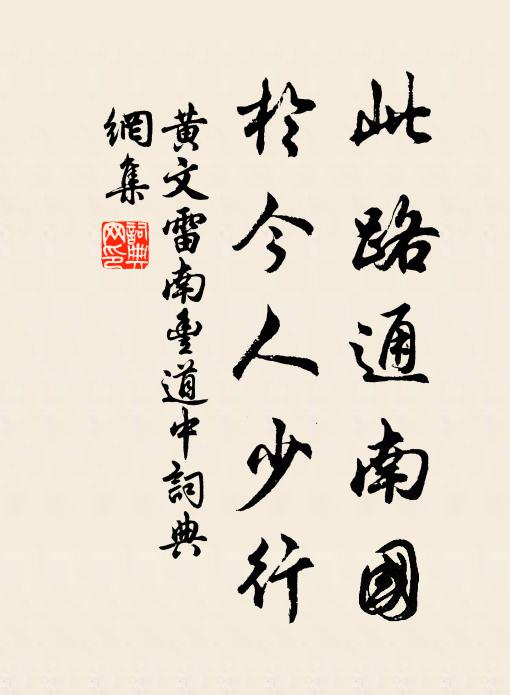 此路通南國
於今人少行
黃文雷南豐道中詞典
網集
詞典
网印